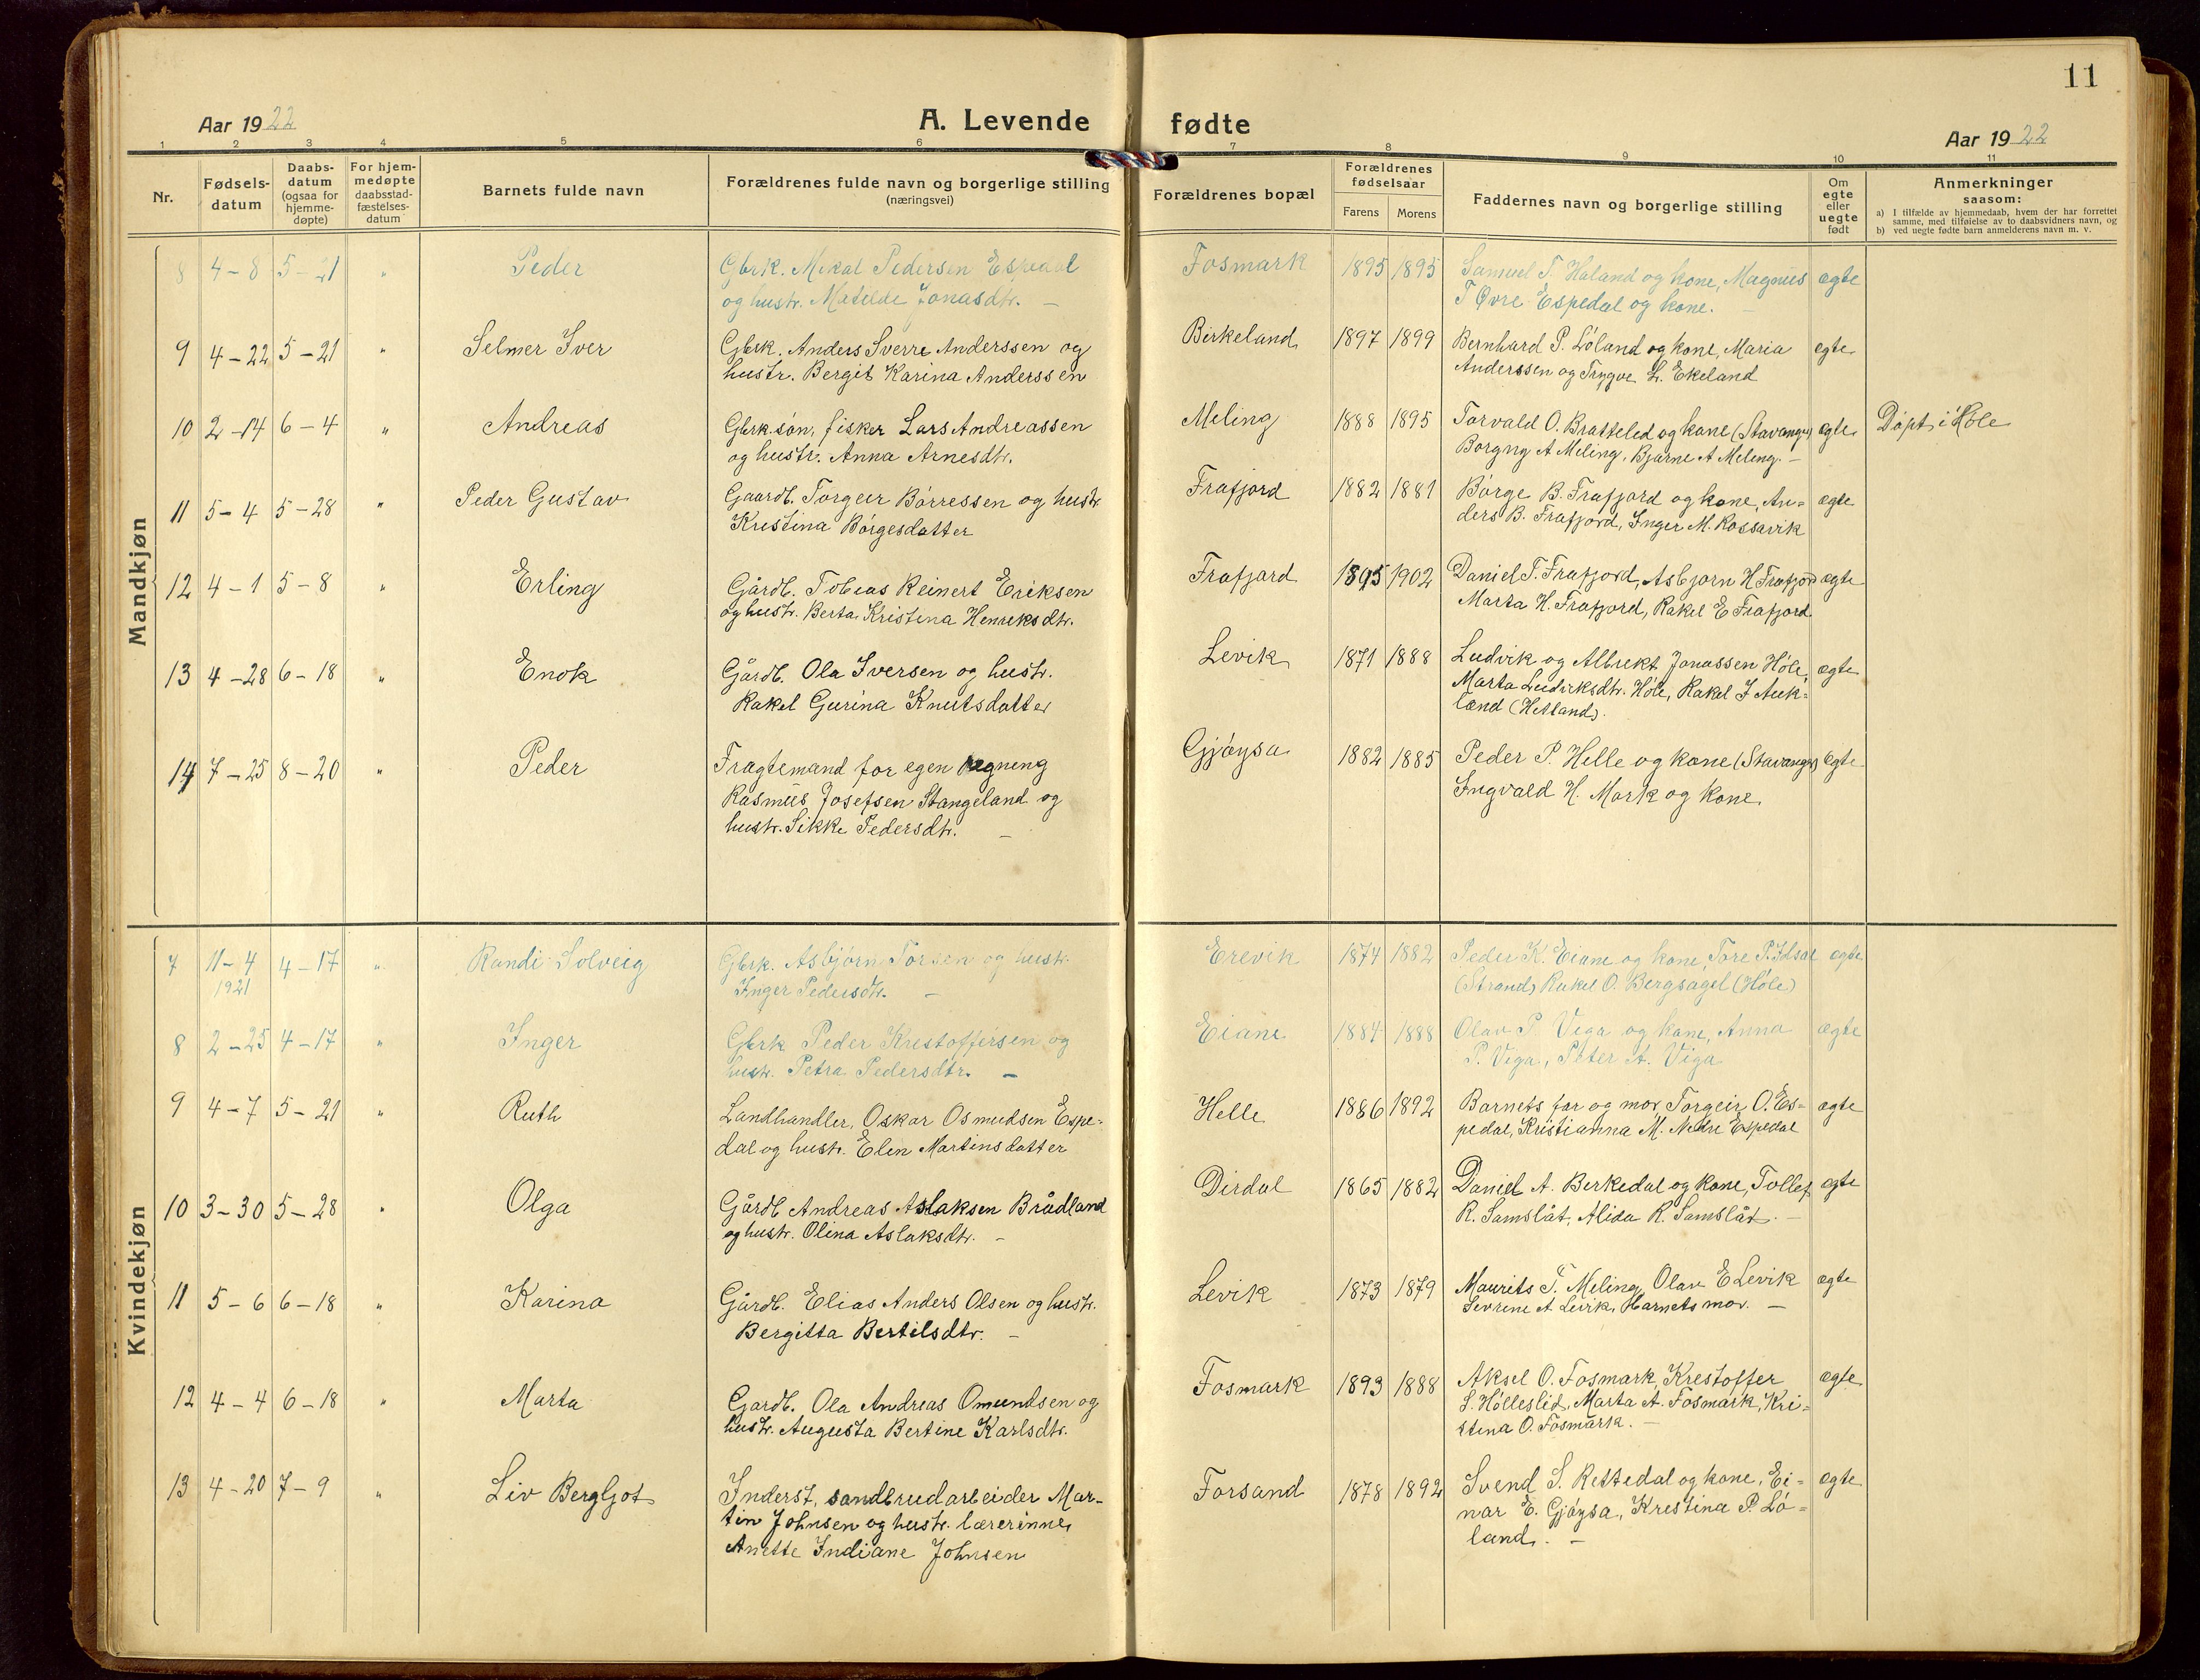 11
Aar 1922
A. Levende fødte
Aar 1922
1 2 3 4 5 6 7 8 9 10 11
Nr.
Fødsels-
datum
Daabs-
datum
(ogsaa for
hjemme-
døpte)
For hjem-
medøpte
daabsstad-
fæstelses-
datum
Barnets fulde navn
Forældrenes fulde navn og borgerlige stilling
(næringsvei)
Forældrenes bopæl
Forældrenes
fødselsaar
Farens Morens
Faddernes navn og borgerlige stilling
Om
egte
eller
uegte
født
Anmerkninger
saasom:
a) I tilfælde av hjemmedaab, hvem der har forrettet
samme, med tilføielse av to daabsvidners navn, og
b) ved uegte fødte barn anmelderens navn m. v.
Mandkjøn
8 4-8 5-21 " Peder Gbrk. Mikal Pedersen Espedal Fosmark 1895 1895 Samuel T. Haland og kone, Magnus egte
og hustr. Matilde Jonasdtr. - T Øvre Espedal og kone. -
9 4-22 5-21 " Selmer Iver Gbrk. Anders Sverre Anderssen og Birkeland 1897 1899 Bernhard P. Löland og kone, Maria egte
hustr. Bergit Karina Anderssen Anderssen og Trygve L. Ekeland
10 2-14 6-4 " Andreas Gbrk.søn, fisker Lars Andreassen Meling 1888 1895 Torvald O. Bratteled og kone (Stavanger) egte Döpt i Höle
og hustr. Anna Arnesdtr. Borgny A Meling, Bjarne A Meling. -
11 5-4 5-28 " Peder Gustav Gaardb. Torgeir Börressen og hustr. Frafjord 1882 1881 Börge B. Frafjord og kone, An- egte
Kristina Börgesdatter ders B. Frafjord, Inger M. Rossavik
12 4-1 5-8 " Erling Gårdb. Tobias Reinert Eriksen Frafjord 1895 1902 Daniel T. Frafjord, Asbjorn H Frafjord egte
og hustr. Berta Kristina Henriksdtr. Marta H. Frafjord, Rakel E Frafjord
13 4-28 6-18 " Enok Gårdb. Ola Iversen og hustr. Levik 1871 1888 Ludvik og Albrekt Jonassen Höle, egte
Rakel Gurina Knutsdatter Marta Ludviksdtr. Höle, Rakel J Auk-
land (Hetland).
14 7-25 8-20 " Peder Fragtemand for egen regning Gjöysa 1882 1885 Peder P. Helle og kone (Stavanger) Egte
Rasmus Josefsen Stangeland og Ingvald H. Mark og kone.
hustr. Sikke Pedersdtr. -
Kvindekjøn
7 11-4 4-17 " Randi Solveig Gbrk. Asbjörn Torsen og hustr. Erevik 1874 1882 Peder K. Eiane og kone, Tore P. Idsal egte
1921 Inger Pedersdtr. - (Strand) Rakel O. Bergsagel (Höle)
8 2-25 4-17 " Inger Gbrk Peder Kristoffersen og Eiane 1884 1888 Olav P. Viga og kone, Anna egte
hustr. Petra Pedersdtr. - P. Viga, Peter A. Viga
9 4-7 5-21 " Ruth Landhandler, Oskar Osmudsen Espe- Helle 1886 1892 Barnets far og mor, Torgeir O. Es- egte
dal og hustr. Elen Martinsdatter pedal, Kristianna M. Nedre Espedal
10 3-30 5-28 " Olga Gårdb Andreas Aslaksen Brådland Dirdal 1865 1882 Daniel A. Berkedal og kone, Tollef egte
og hustr. Olina Aslaksdtr. - R. Samslåt, Alida R. Samslåt. -
11 5-6 6-18 " Karina Gårdb. Elias Anders Olsen og hustr. Levik 1873 1879 Maurits T. Meling, Olav E Levik egte
Bergitta Bertilsdtr. - Sevrine A Levik, Barnets mor. -
12 4-4 6-18 " Marta Gardb. Ola Andreas Omundsen og Fosmark 1893 1888 Aksel O. Fosmark, Krestoffer egte
hustr. Augusta Bertine Karlsdtr. S. Hölleslid, Marta A. Fosmark, Kri-
stina O. Fosmark. -
13 4-20 7-9 " Liv Bergljot Inderst, sandbrudarbeider Mar- Forsand 1878 1892 Svend S. Rettedal og kone, Ei- egte
tin Johnsen og hustr. lærerinne nar E. Gjöysa, Krestina P. Lö-
Anette Indiane Johnsen land. -